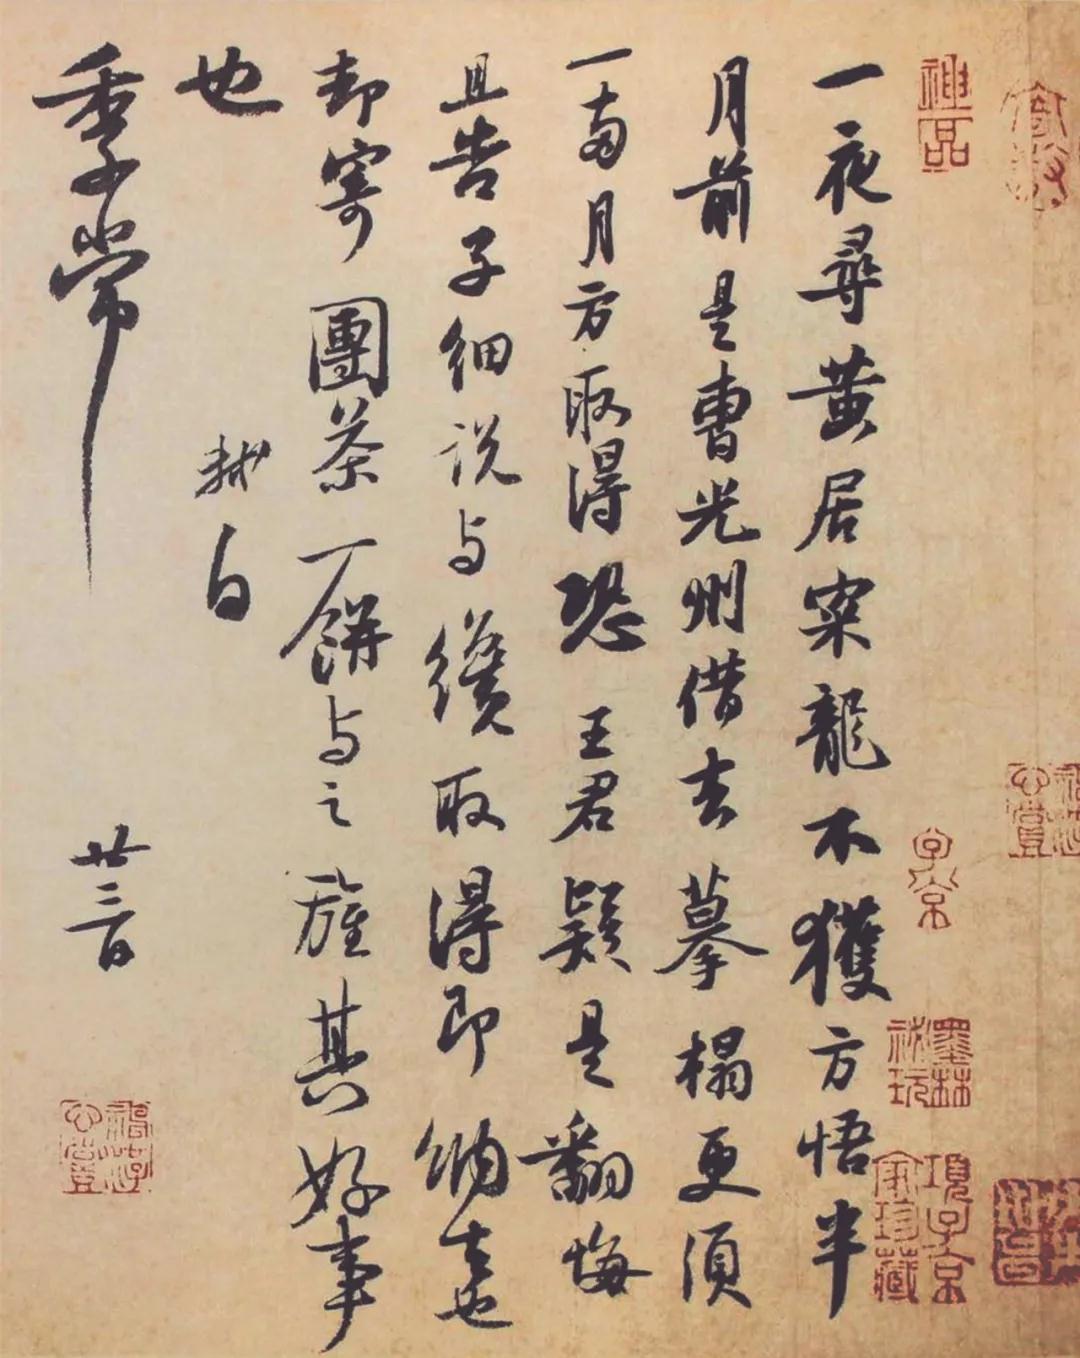 一夜尋黄居寀龍不獲方悟半
月前是曹光州借去摹榻更須
一兩月方取得恐王君疑是翻悔
且告子細説与纔取得即納去也
却寄團茶一餅与之旌其好事
也
軾白
季常
廿三日
神品
子京
墨林祕玩
項子京家珍藏